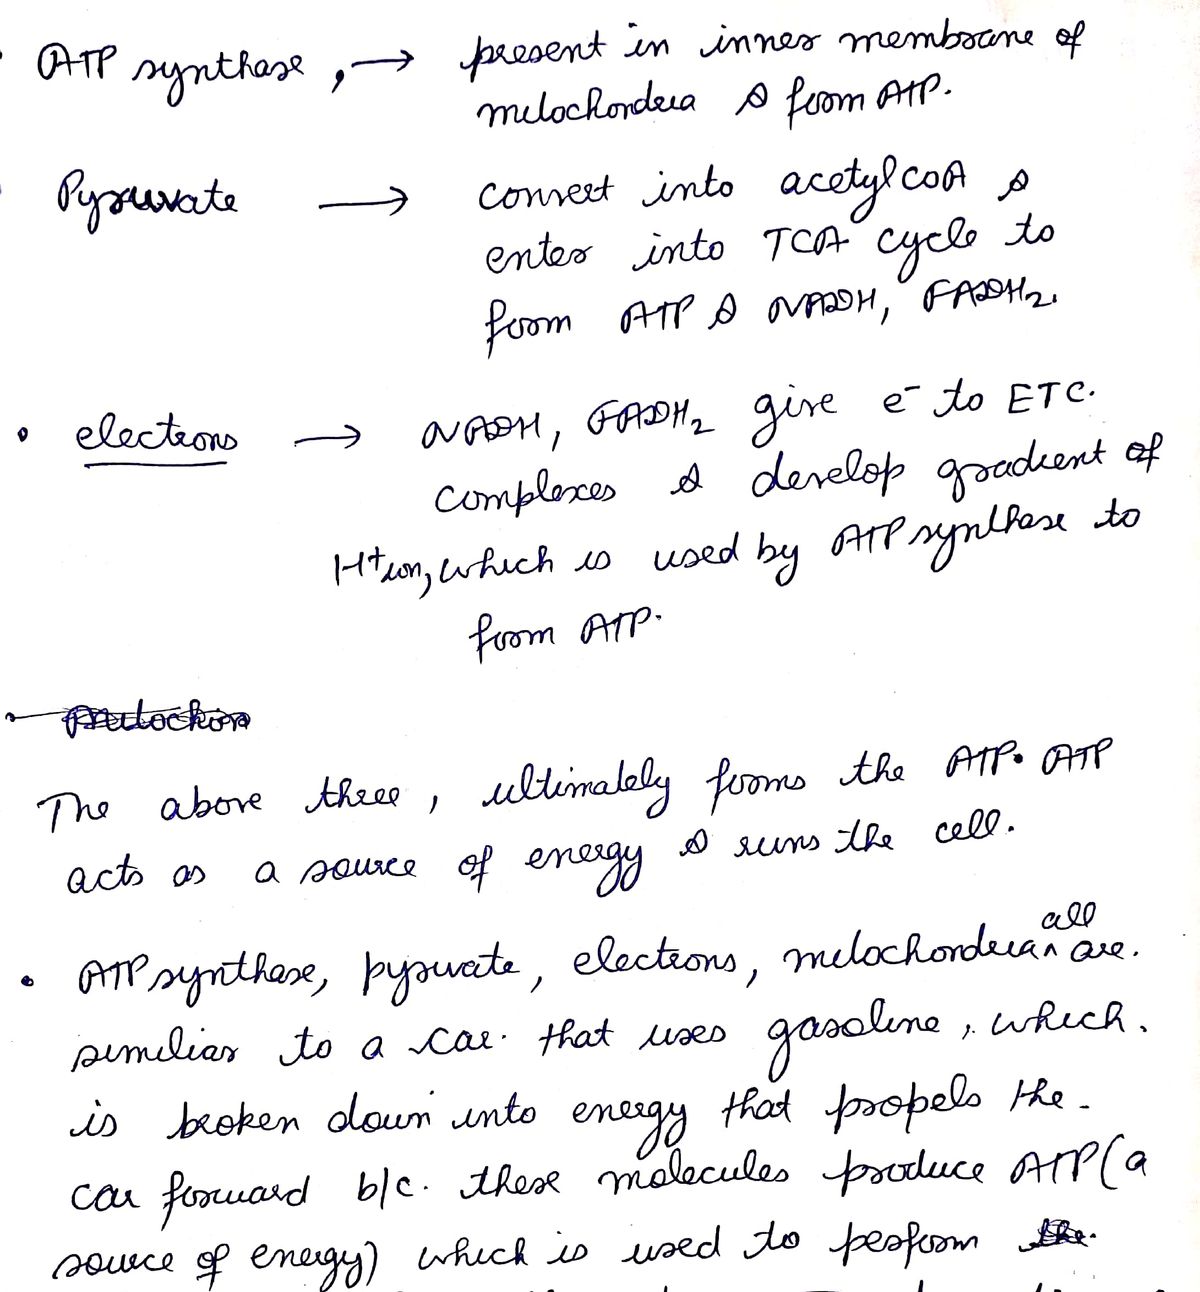 • ATP synthase, → present in inner membrane of
mitochondria & form ATP.
Pyruvate → convert into acetyl coA &
enter into TCA cycle to
form ATP & NADH, FADH2.
• electrons → NADH, FADH2 give e- to ETC.
complexes & develop gradient of
H+ ion, which is used by ATP synthase to
form ATP.
The above three, ultimately forms the ATP. ATP
acts as a source of energy & runs the cell.
• ATP synthase, pyruvate, electrons, mitochondria all are.
similiar to a car. that uses gasoline, which.
is broken down into energy that propels the.
car forward b/c. these molecules produce ATP (a
source of energy) which is used to perform